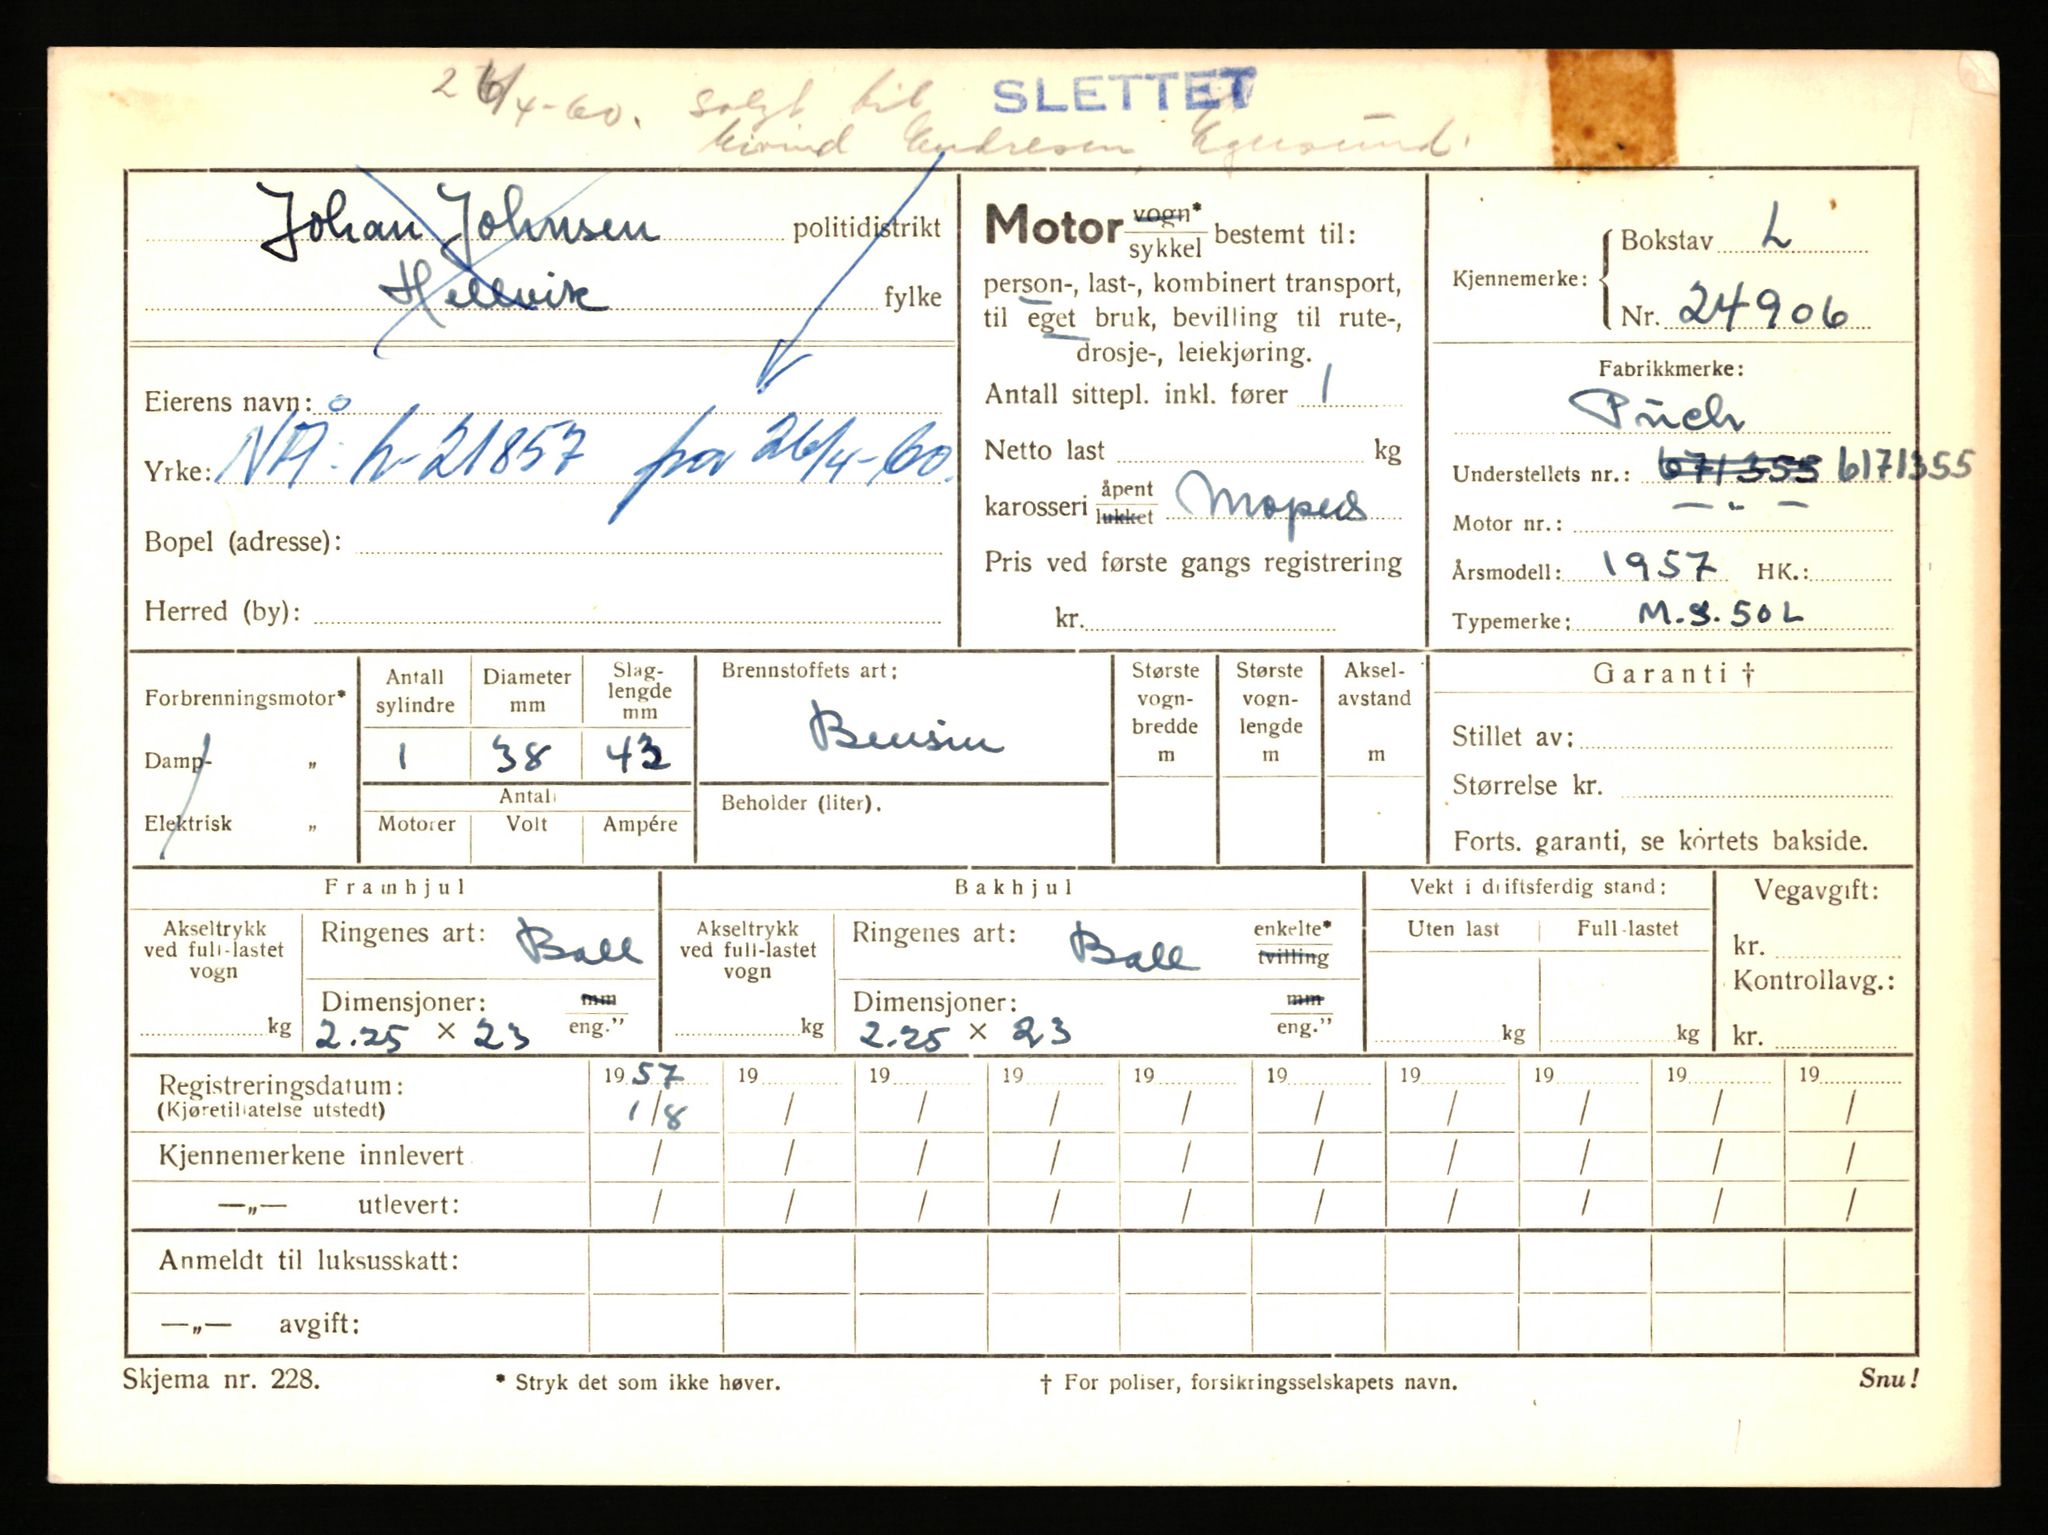 26/4-60. solgt til SLETTET
Eivind Endresen, Egersund.
Johan Johnsen politidistrikt
Hellvik fylke
Eierens navn:
Yrke: NÅ: L-21857 fra 26/4-60.
Bopel (adresse):
Herred (by):
Motor vogn* sykkel bestemt til:
person-, last-, kombinert transport,
til eget bruk, bevilling til rute-,
drosje-, leiekjøring.
Antall sittepl. inkl. fører 1
Netto last kg
karosseri åpent lukket Moped
Pris ved første gangs registrering
kr.
Kjennemerke: Bokstav L
Nr. 24906
Fabrikkmerke:
Puch
Understellets nr.: 671355 6171355
Motor nr.: — „ —
Årsmodell: 1957 HK.:
Typemerke: M.S. 50 L
Forbrenningsmotor*
Damp- „
Elektrisk „
Antall sylindre Diameter mm Slag-lengde mm
1 38 43
Antall
Motorer Volt Ampére
Brennstoffets art:
Bensin
Beholder (liter).
Største vogn-bredde m
Største vogn-lengde m
Aksel-avstand m
Garanti †
Stillet av:
Størrelse kr.
Forts. garanti, se kortets bakside.
Framhjul
Akseltrykk ved full-lastet vogn
kg
Ringenes art: Ball
Dimensjoner: mm
2.25 × 23 eng.”
Bakhjul
Akseltrykk ved full-lastet vogn
kg
Ringenes art: Ball enkelte* tvilling
Dimensjoner: mm
2.25 × 23 eng.”
Vekt i driftsferdig stand:
Uten last Full-lastet
kg kg
Vegavgift:
kr.
Kontrollavg.:
kr.
Registreringsdatum: 19 57 19 19 19 19 19 19 19 19 19
(Kjøretillatelse utstedt) 1/8 / / / / / / / / /
Kjennemerkene innlevert / / / / / / / / / /
—„— utlevert: / / / / / / / / / /
Anmeldt til luksusskatt:
—„— avgift:
Skjema nr. 228. * Stryk det som ikke høver. † For poliser, forsikringsselskapets navn. Snu!